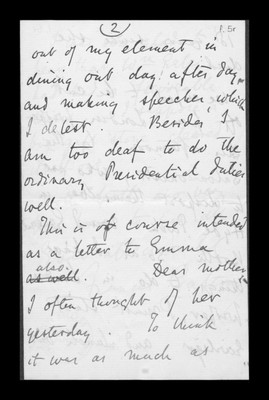 (2)
out of my element in
dining out day after day
and making speeches which
I detest. Besides I
am too deaf to do the
ordinary Presidential duties
well.
This is of course intended
as a letter to Emma
also
as well. Dear mother
I often thought of her
yesterday. To think
it was as much as